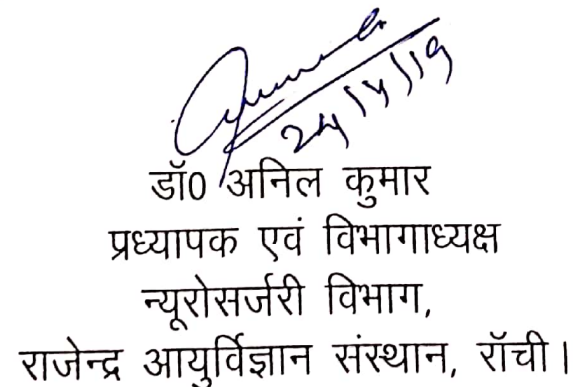 24/4/19
डॉ0 अनिल कुमार
प्रध्यापक एवं विभागाध्यक्ष
न्यूरोसर्जरी विभाग,
राजेन्द्र आयुर्विज्ञान संस्थान, रॉची।